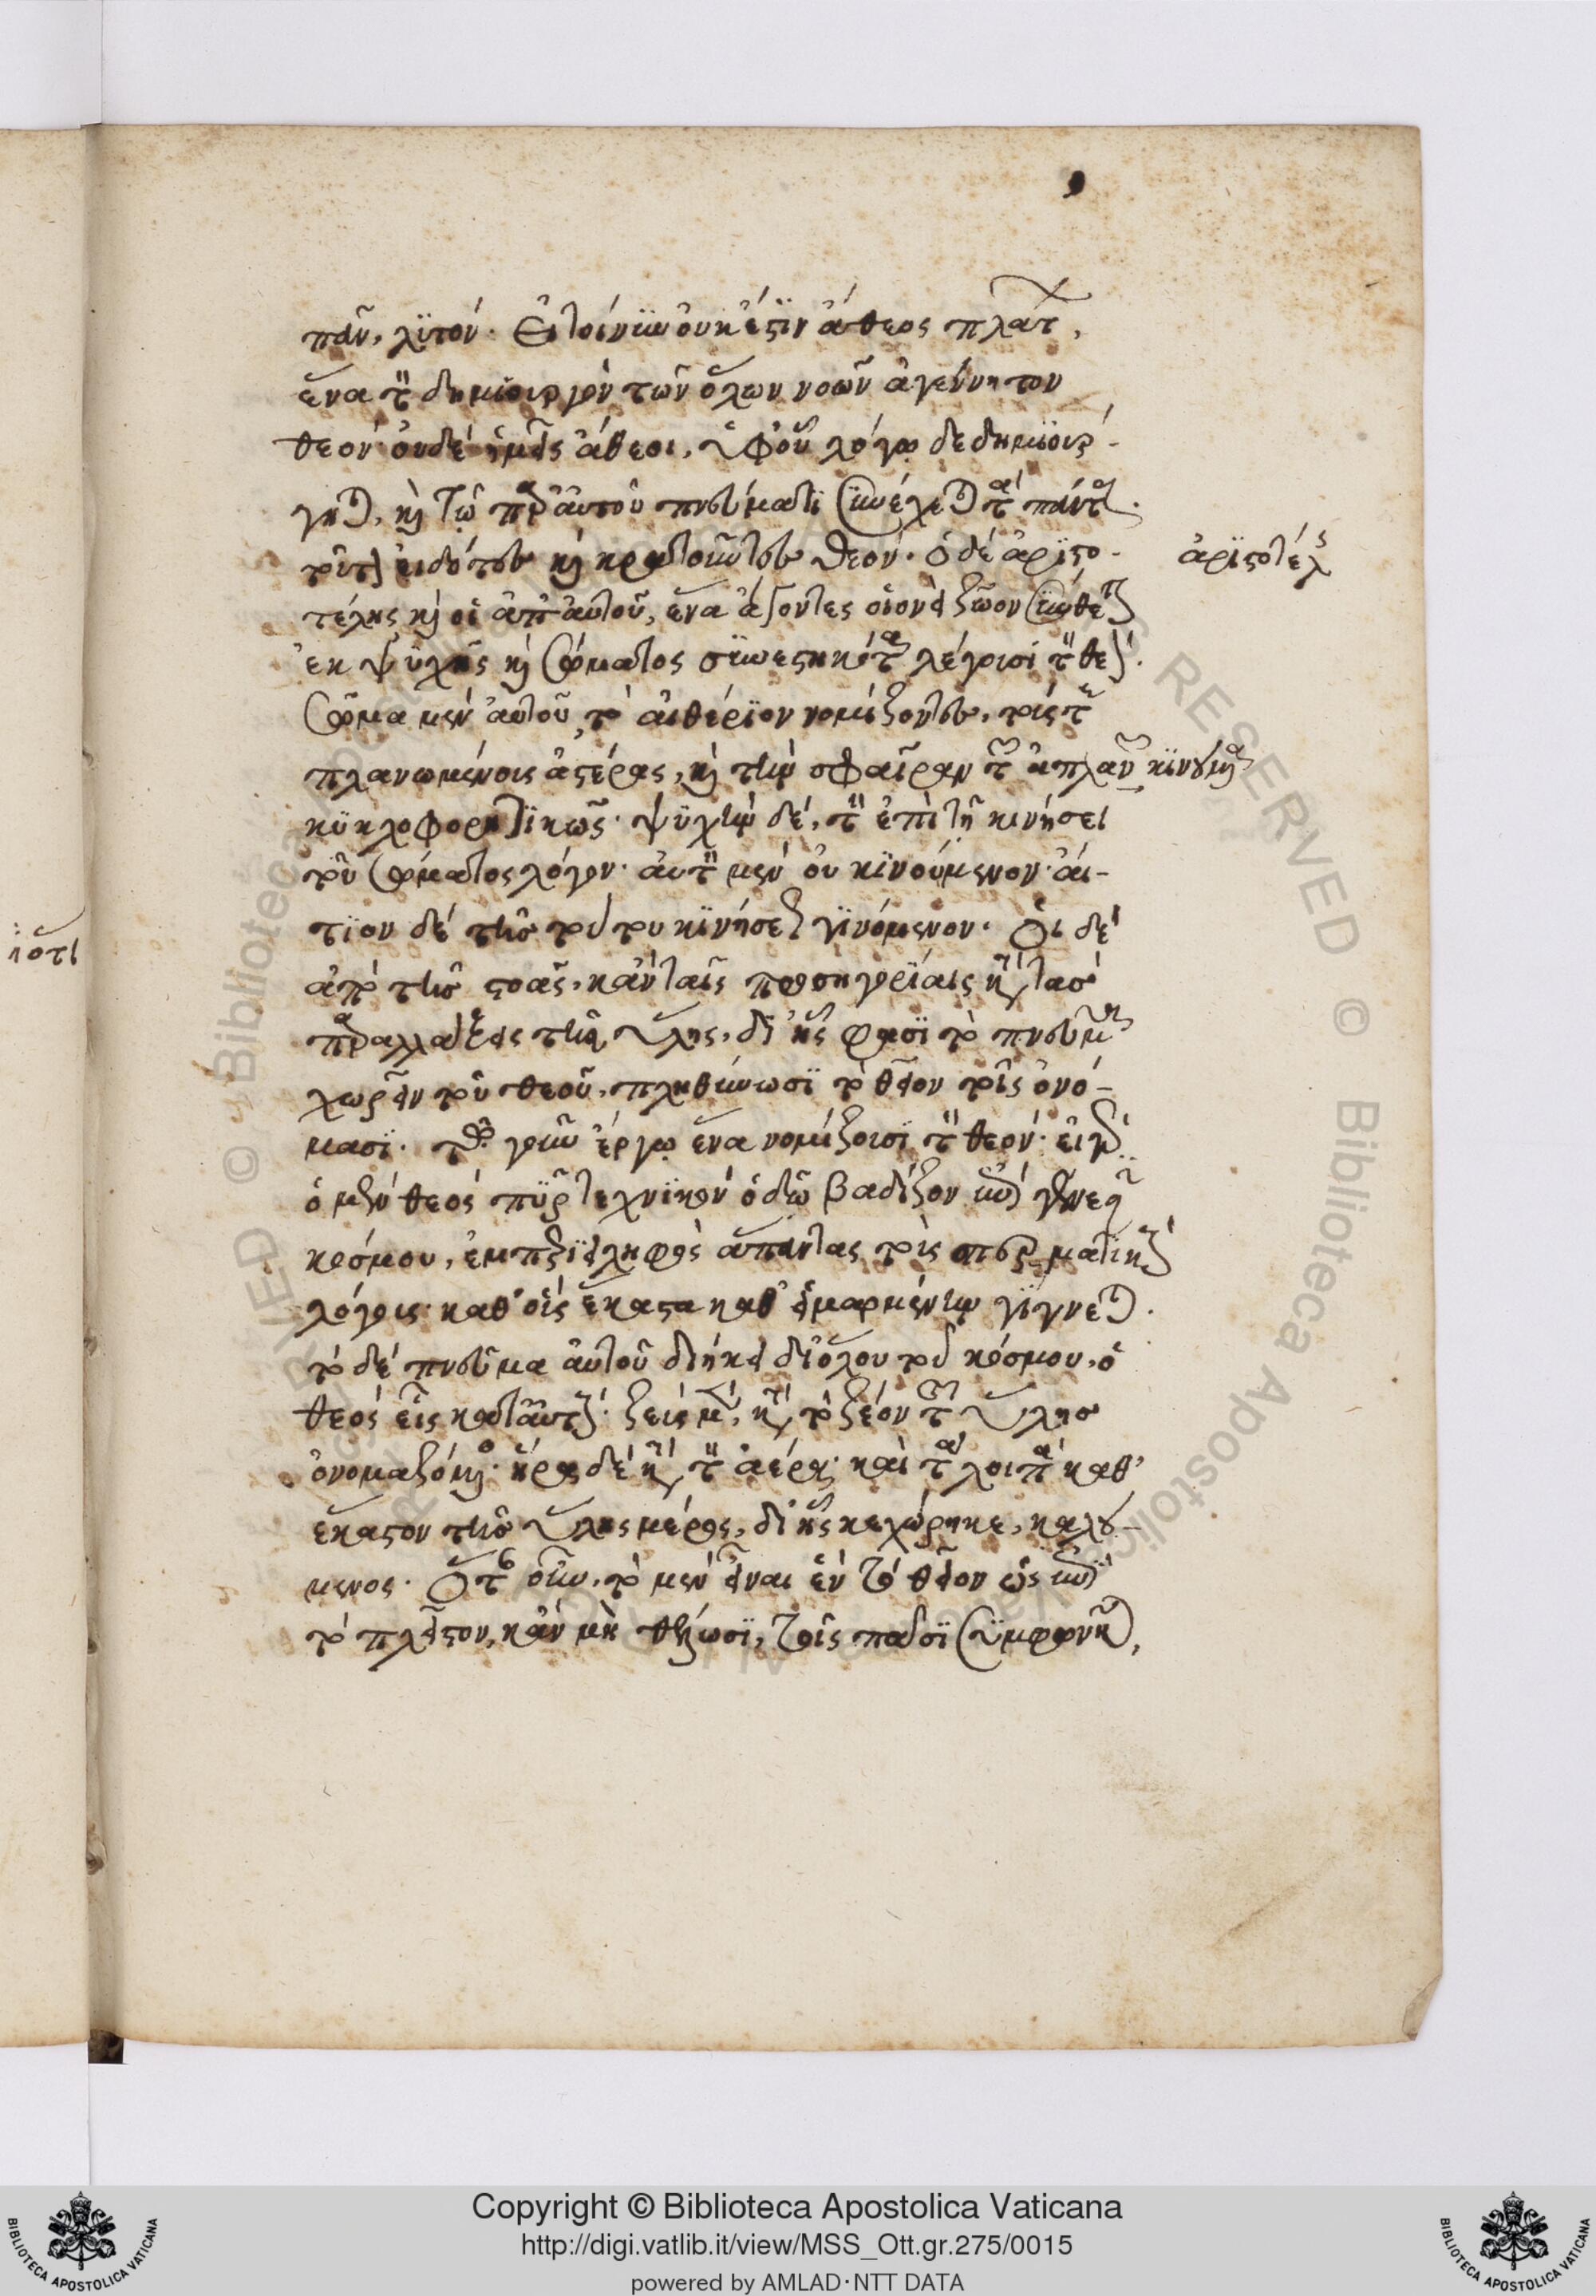 παν, λυτόν. Εἰ τοίνυν οὐκ ἔστιν ἄθεος πλάτ,
ἕνα τὸν δημιουργὸν τῶν ὅλων νοῶν ἀγέννητον
θεὸν οὐδὲ ἡμεῖς ἄθεοι, ὑφ' οὗ λόγῳ δεδημιούρ-
γηται, καὶ τῷ παρ' αὐτοῦ πνεύματι συνέχεται τὰ πάντα.
τοῦτον εἰδότες καὶ κρατοῦντες θεόν. ὁ δὲ ἀριστο-
τέλης καὶ οἱ ἀπ' αὐτοῦ, ἕνα ἄγοντες οἱονεὶ ζῷον σύνθετον
ἐκ ψυχῆς καὶ σώματος συνεστηκότα λέγουσι τὸν θεόν.
σῶμα μὲν αὐτοῦ τὸ αἰθέριον νομίζοντες, τούς τε
πλανωμένους ἀστέρας, καὶ τὴν σφαῖραν τῶν ἀπλανῶν κινούμενα
κυκλοφορητικῶς. ψυχὴν δὲ, τὸν ἐπὶ τῇ κινήσει
τοῦ σώματος λόγον. αὐτὸν μὲν οὐ κινούμενον. αἴ-
τιον δὲ τῆς τούτου κινήσεως γινόμενον. Οἱ δὲ
ἀπὸ τῆς στοᾶς, κἂν ταῖς προσηγορίαις κατὰ τὰς
παραλλάξεις τῆς ὕλης, δι' ἧς φασι τὸ πνεῦμα
χωρεῖν τοῦ θεοῦ, πληθύνωσι τὸ θεῖον τοῖς ὀνό-
μασι. τῷ γοῦν ἔργῳ ἕνα νομίζουσι τὸν θεόν. εἰ γὰρ
ὁ μὲν θεὸς πῦρ τεχνικὸν ὁδῷ βαδίζον ἐπὶ γενέσει
κόσμου, ἐμπεριειληφὸς ἅπαντας τοὺς σπερματικοὺς
λόγους καθ' οὓς ἕκαστα καθ' εἱμαρμένην γίγνεται.
τὸ δὲ πνεῦμα αὐτοῦ διήκει δι' ὅλου τοῦ κόσμου, ὁ
θεὸς εἷς κατ' αὐτούς. ζεὺς μὲν, κατὰ τὸ ζέον τῆς ὕλης
ὀνομαζόμενος. ἥρα δὲ κατὰ τὸν ἀέρα. καὶ τὰ λοιπὰ καθ'
ἕκαστον τῆς ὕλης μέρος, δι' ἧς κεχώρηκε, καλού-
μενος. Ὅταν οὖν, τὸ μὲν εἶναι ἓν τὸ θεῖον ὡς ἐπὶ
τὸ πλεῖστον, κἂν μὴ θέλωσι, τοῖς πᾶσι συμφωνῆται,
ἀριστοτέλης
ὅτι
Copyright © Biblioteca Apostolica Vaticana
http://digi.vatlib.it/view/MSS_Ott.gr.275/0015
powered by AMLAD·NTT DATA
BIBLIOTECA APOSTOLICA VATICANA
BIBLIOTECA APOSTOLICA VATICANA